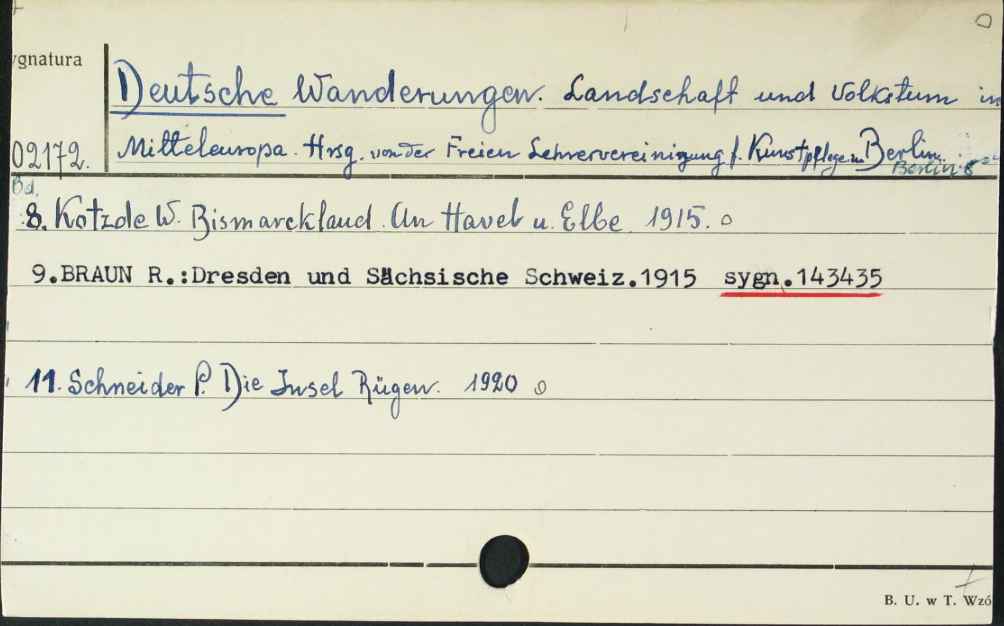 ygnatura
Deutsche Wanderungen. Landschaft und Volkstum in
02172. Mitteleuropa. Hrsg. von der Freien Lehrervereinigung f. Kunstpflege in Berlin.
Berlin 8°
Bd.
8. Kotzde W. Bismarckland. An Havel u. Elbe 1915.
9.BRAUN R.:Dresden und Sächsische Schweiz.1915 sygn.143435
11. Schneider P. Die Insel Rügen. 1920
B. U. w T. Wzó